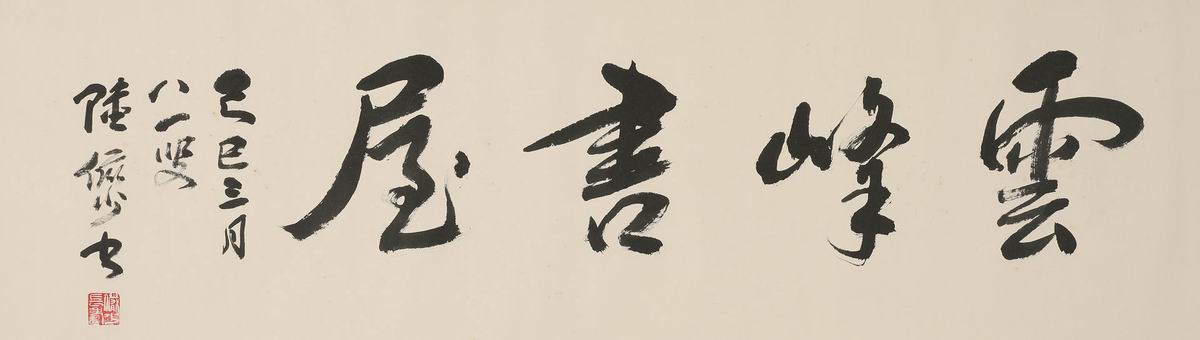 雲峰書屋
己巳三月
八一叟
陸儼少